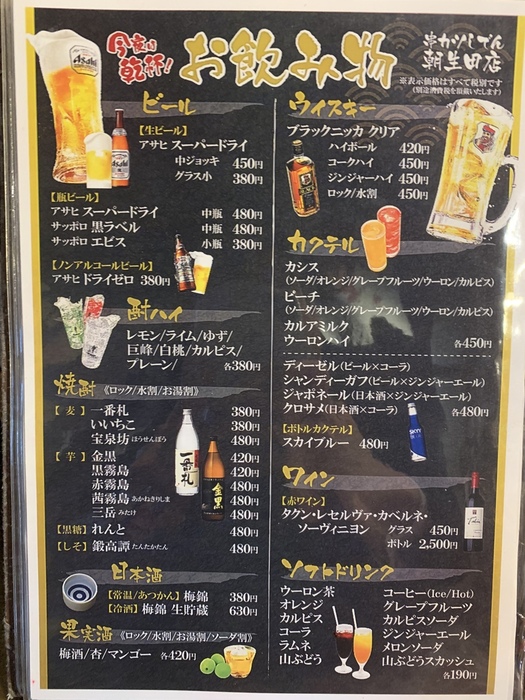 今夜も乾杯!
お飲み物
串かつしでん
朝生田店
※表示価格はすべて税別です
(別途消費税を頂戴いたします)
ビール
【生ビール】
アサヒ スーパードライ
中ジョッキ 450円
グラス小 380円
【瓶ビール】
アサヒ スーパードライ 中瓶 480円
サッポロ 黒ラベル 中瓶 480円
サッポロ エビス 小瓶 380円
【ノンアルコールビール】
アサヒ ドライゼロ 380円
酎ハイ
レモン/ライム/ゆず/
巨峰/白桃/カルピス/
プレーン/ 各380円
焼酎 《ロック/水割/お湯割》
【麦】 一番札 380円
いいちこ 380円
宝泉坊 ほうせんぼう 480円
【芋】 金黒 420円
黒霧島 420円
赤霧島 480円
茜霧島 あかねきりしま 480円
三岳 みたけ 480円
【黒糖】 れんと 480円
【しそ】 鍛高譚 たんたかたん 480円
日本酒
【常温/あつかん】 梅錦 380円
【冷酒】 梅錦 生貯蔵 630円
果実酒 《ロック/水割/お湯割/ソーダ割》
梅酒/杏/マンゴー 各420円
ウィスキー
ブラックニッカ クリア
ハイボール 420円
コークハイ 450円
ジンジャーハイ 450円
ロック/水割 450円
カクテル
カシス
(ソーダ/オレンジ/グレープフルーツ/ウーロン/カルピス)
ピーチ
(ソーダ/オレンジ/グレープフルーツ/ウーロン/カルピス)
カルアミルク
ウーロンハイ 各450円
ディーゼル(ビール×コーラ)
シャンディーガフ(ビール×ジンジャーエール)
ジャポネール(日本酒×ジンジャーエール)
クロサメ(日本酒×コーラ) 各480円
【ボトルカクテル】
スカイブルー 480円
ワイン
【赤ワイン】
タクン・レセルヴァ・カベルネ・
ソーヴィニヨン グラス 450円
ボトル 2,500円
ソフトドリンク
ウーロン茶
オレンジ
カルピス
コーラ
ラムネ
山ぶどう
コーヒー(Ice/Hot)
グレープフルーツ
カルピスソーダ
ジンジャーエール
メロンソーダ
山ぶどうスカッシュ
各190円
Asahi
一番札
金黒
SKYY